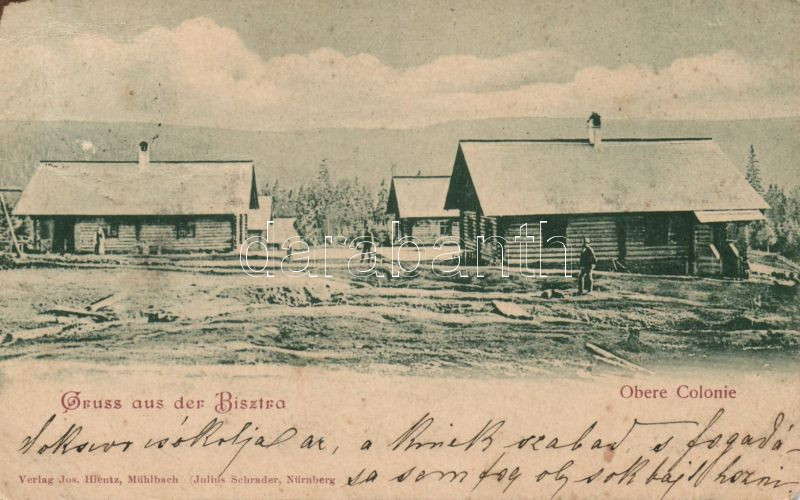 darabanth
Gruss aus der Bisztra
Obere Colonie
Sokszor csókolja az, a kinek szabad, s fogadá-
sa sem fog oly sok bajt hozni
Verlag Jos. Hientz, Mühlbach (Julius Schrader, Nürnberg